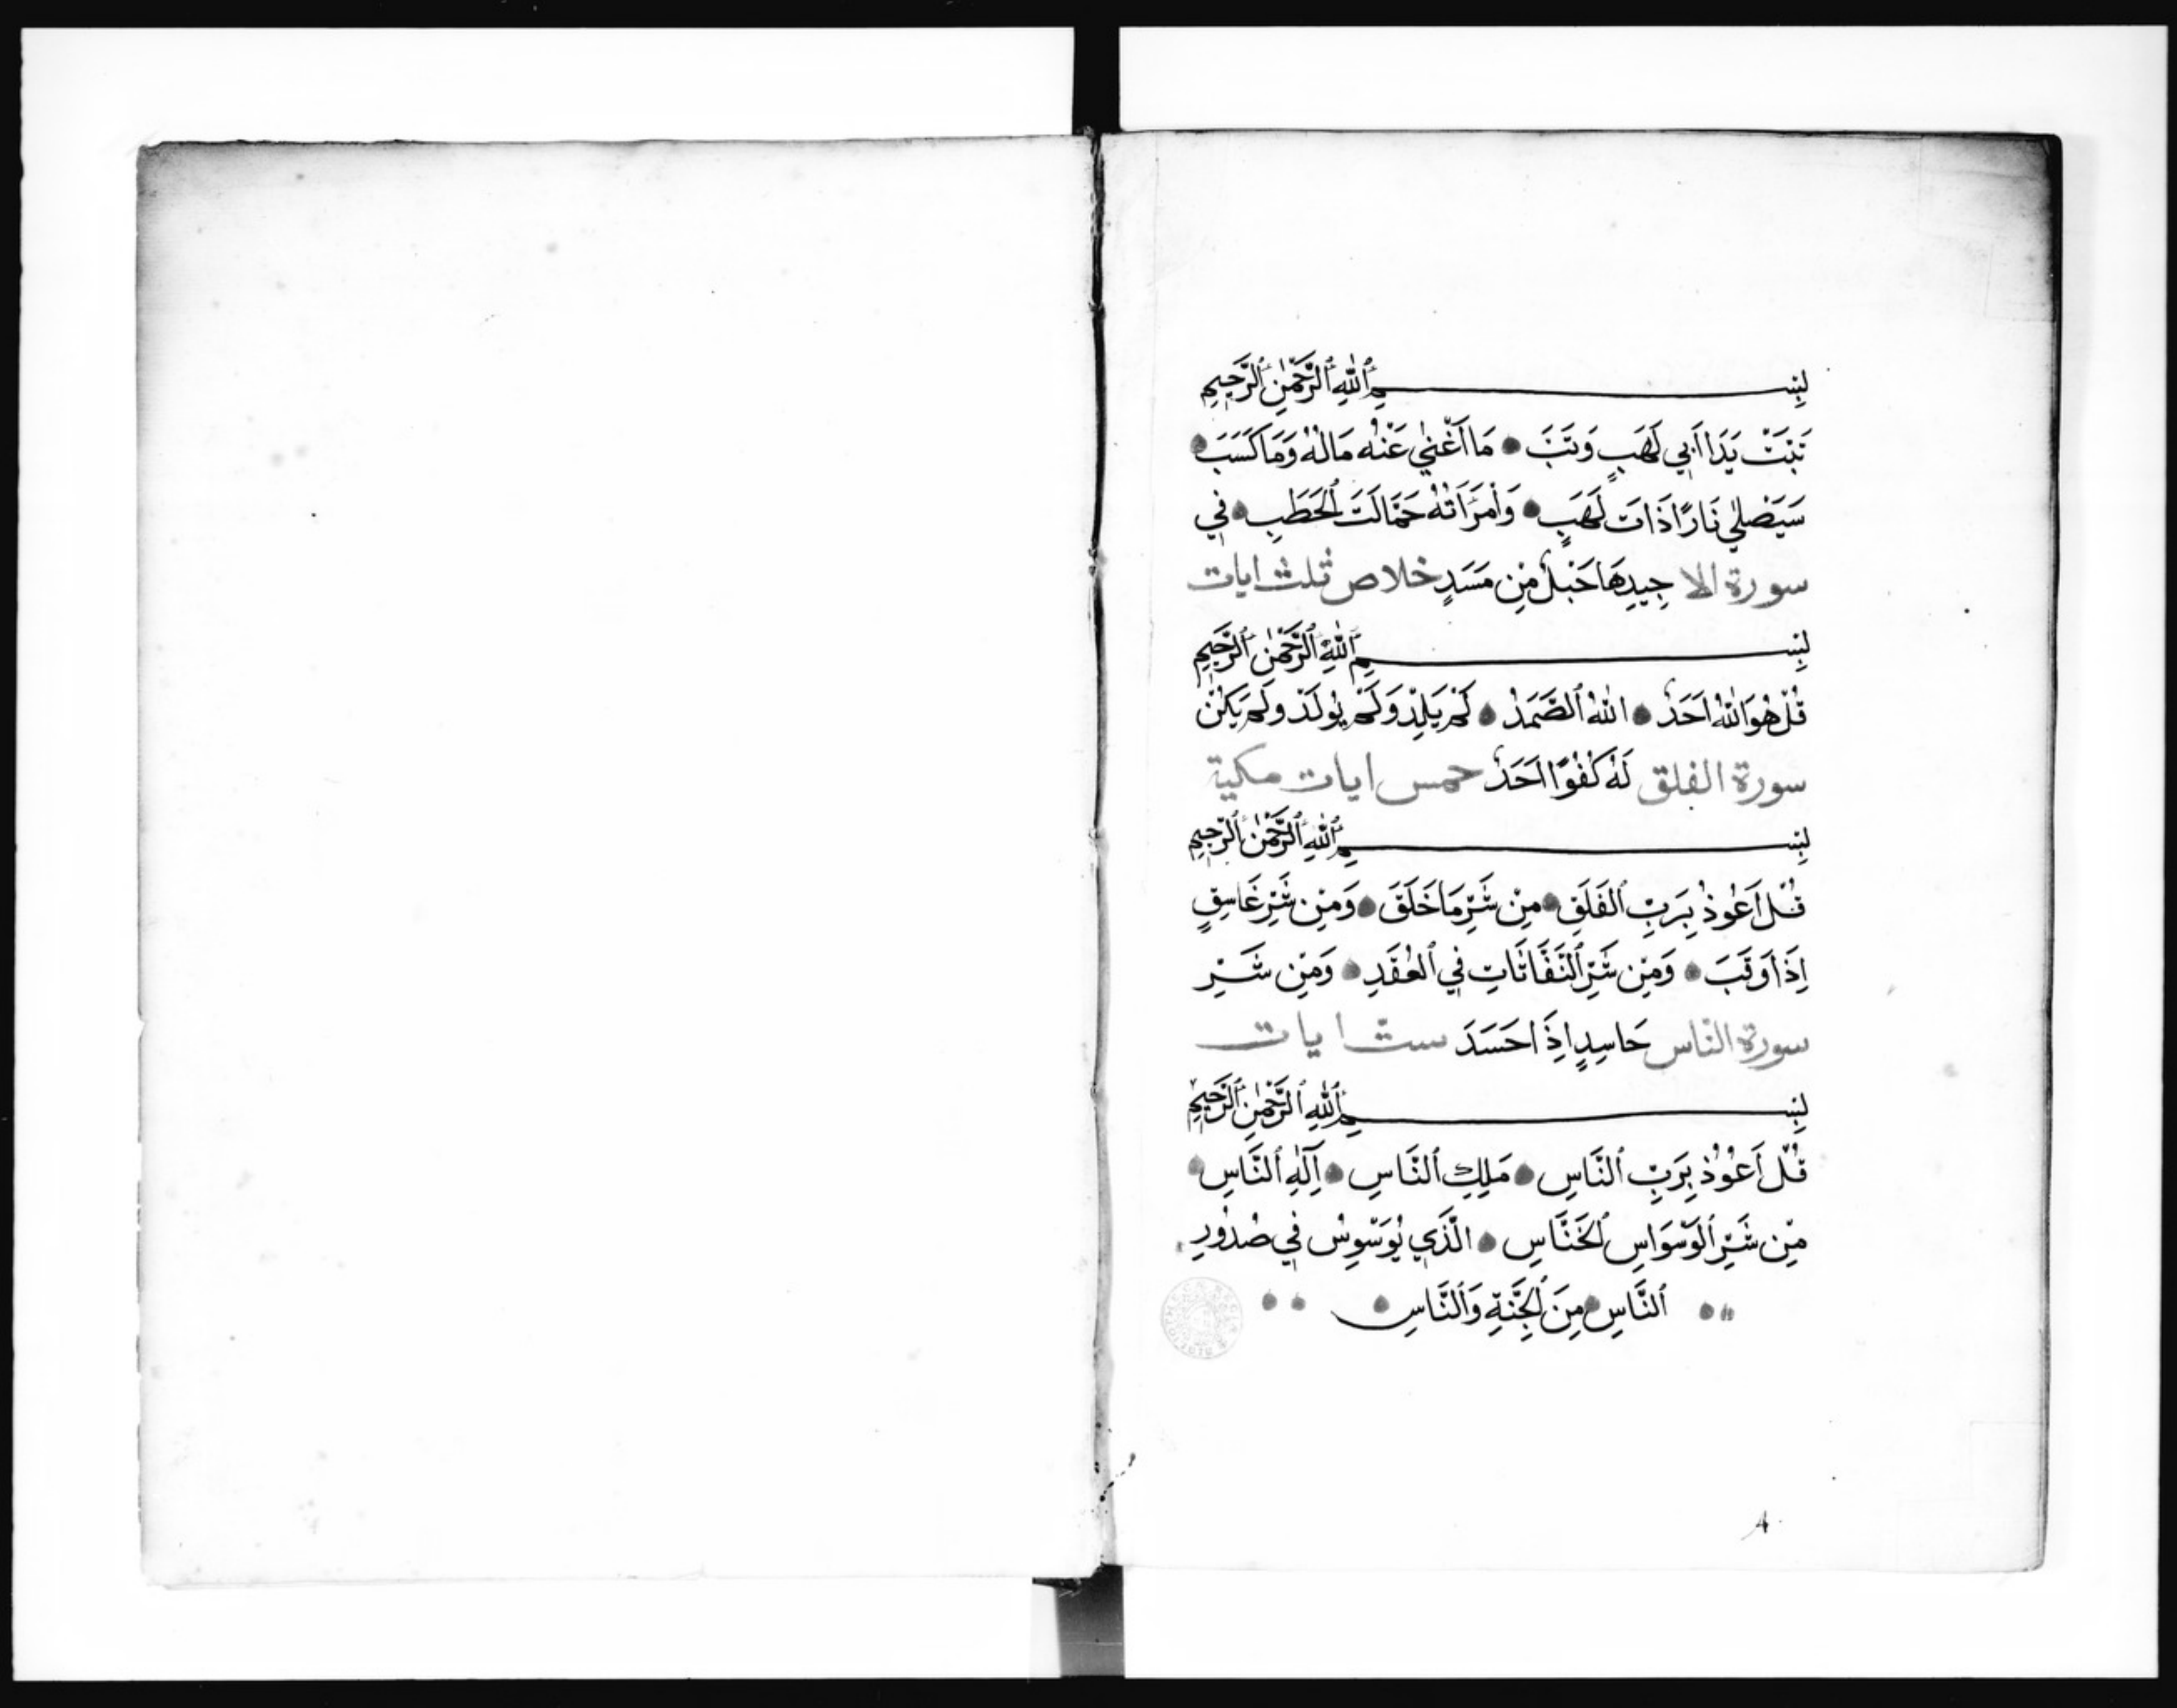 بِسْمِ ٱللّٰهِ ٱلرَّحْمٰنِ ٱلرَّحِيمِ
تَبَّتْ يَدَا اَبِي لَهَبٍ وَتَبَّ ● مَا اَغْنٰي عَنْهُ مَالُهُ وَمَا كَسَبَ ●
سَيَصْلٰي نَارًا ذَاتَ لَهَبٍ ● وَٱمْرَاَتُهُ حَمَّالَتَ ٱلْحَطَبِ ● فِي
سورة الا جِيدِهَا حَبْلٌ مِّن مَسَدٍ خلاص ثلث ايات
بِسْمِ ٱللّٰهِ ٱلرَّحْمٰنِ ٱلرَّحِيمِ
قُلْ هُوَ اللّٰهُ اَحَدٌ ● اللّٰهُ ٱلصَّمَدُ ● لَمْ يَلِدْ وَلَمْ يُولَدْ وَلَمْ يَكُنْ
سورة الفلق لَهُ كُفُوًا اَحَدٌ خمس ايات مكية
بِسْمِ ٱللّٰهِ ٱلرَّحْمٰنِ ٱلرَّحِيمِ
قُلْ اَعُوذُ بِرَبِّ ٱلْفَلَقِ ● مِنْ شَرِّ مَا خَلَقَ ● وَمِنْ شَرِّ غَاسِقٍ
اِذَا وَقَبَ ● وَمِنْ شَرِّ ٱلنَّفَّاثَاتِ فِي ٱلْعُقَدِ ● وَمِنْ شَرِّ
سورة النّاس حَاسِدٍ اِذَا حَسَدَ ستّ ايات
بِسْمِ ٱللّٰهِ ٱلرَّحْمٰنِ ٱلرَّحِيمِ
قُلْ اَعُوْذُ بِرَبِّ ٱلنَّاسِ ● مَلِكِ ٱلنَّاسِ ● اِلٰهِ ٱلنَّاسِ ●
مِنْ شَرِّ ٱلْوَسْوَاسِ ٱلْخَنَّاسِ ● الَّذِي يُوَسْوِسُ فِي صُدُورِ
ٱلنَّاسِ ● مِنَ ٱلْجِنَّةِ وَٱلنَّاسِ ●